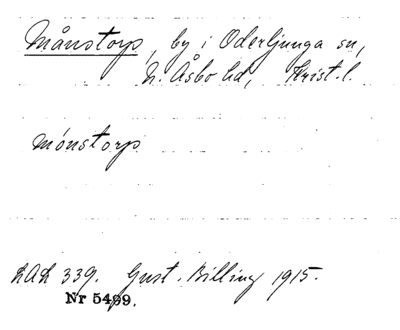 Månstorp, by i Oderljunga sn,
N. Åsbo hd, Krist. l.
mónstorp
LAL 339. Gust. Billing 1915.
Nr 5499.